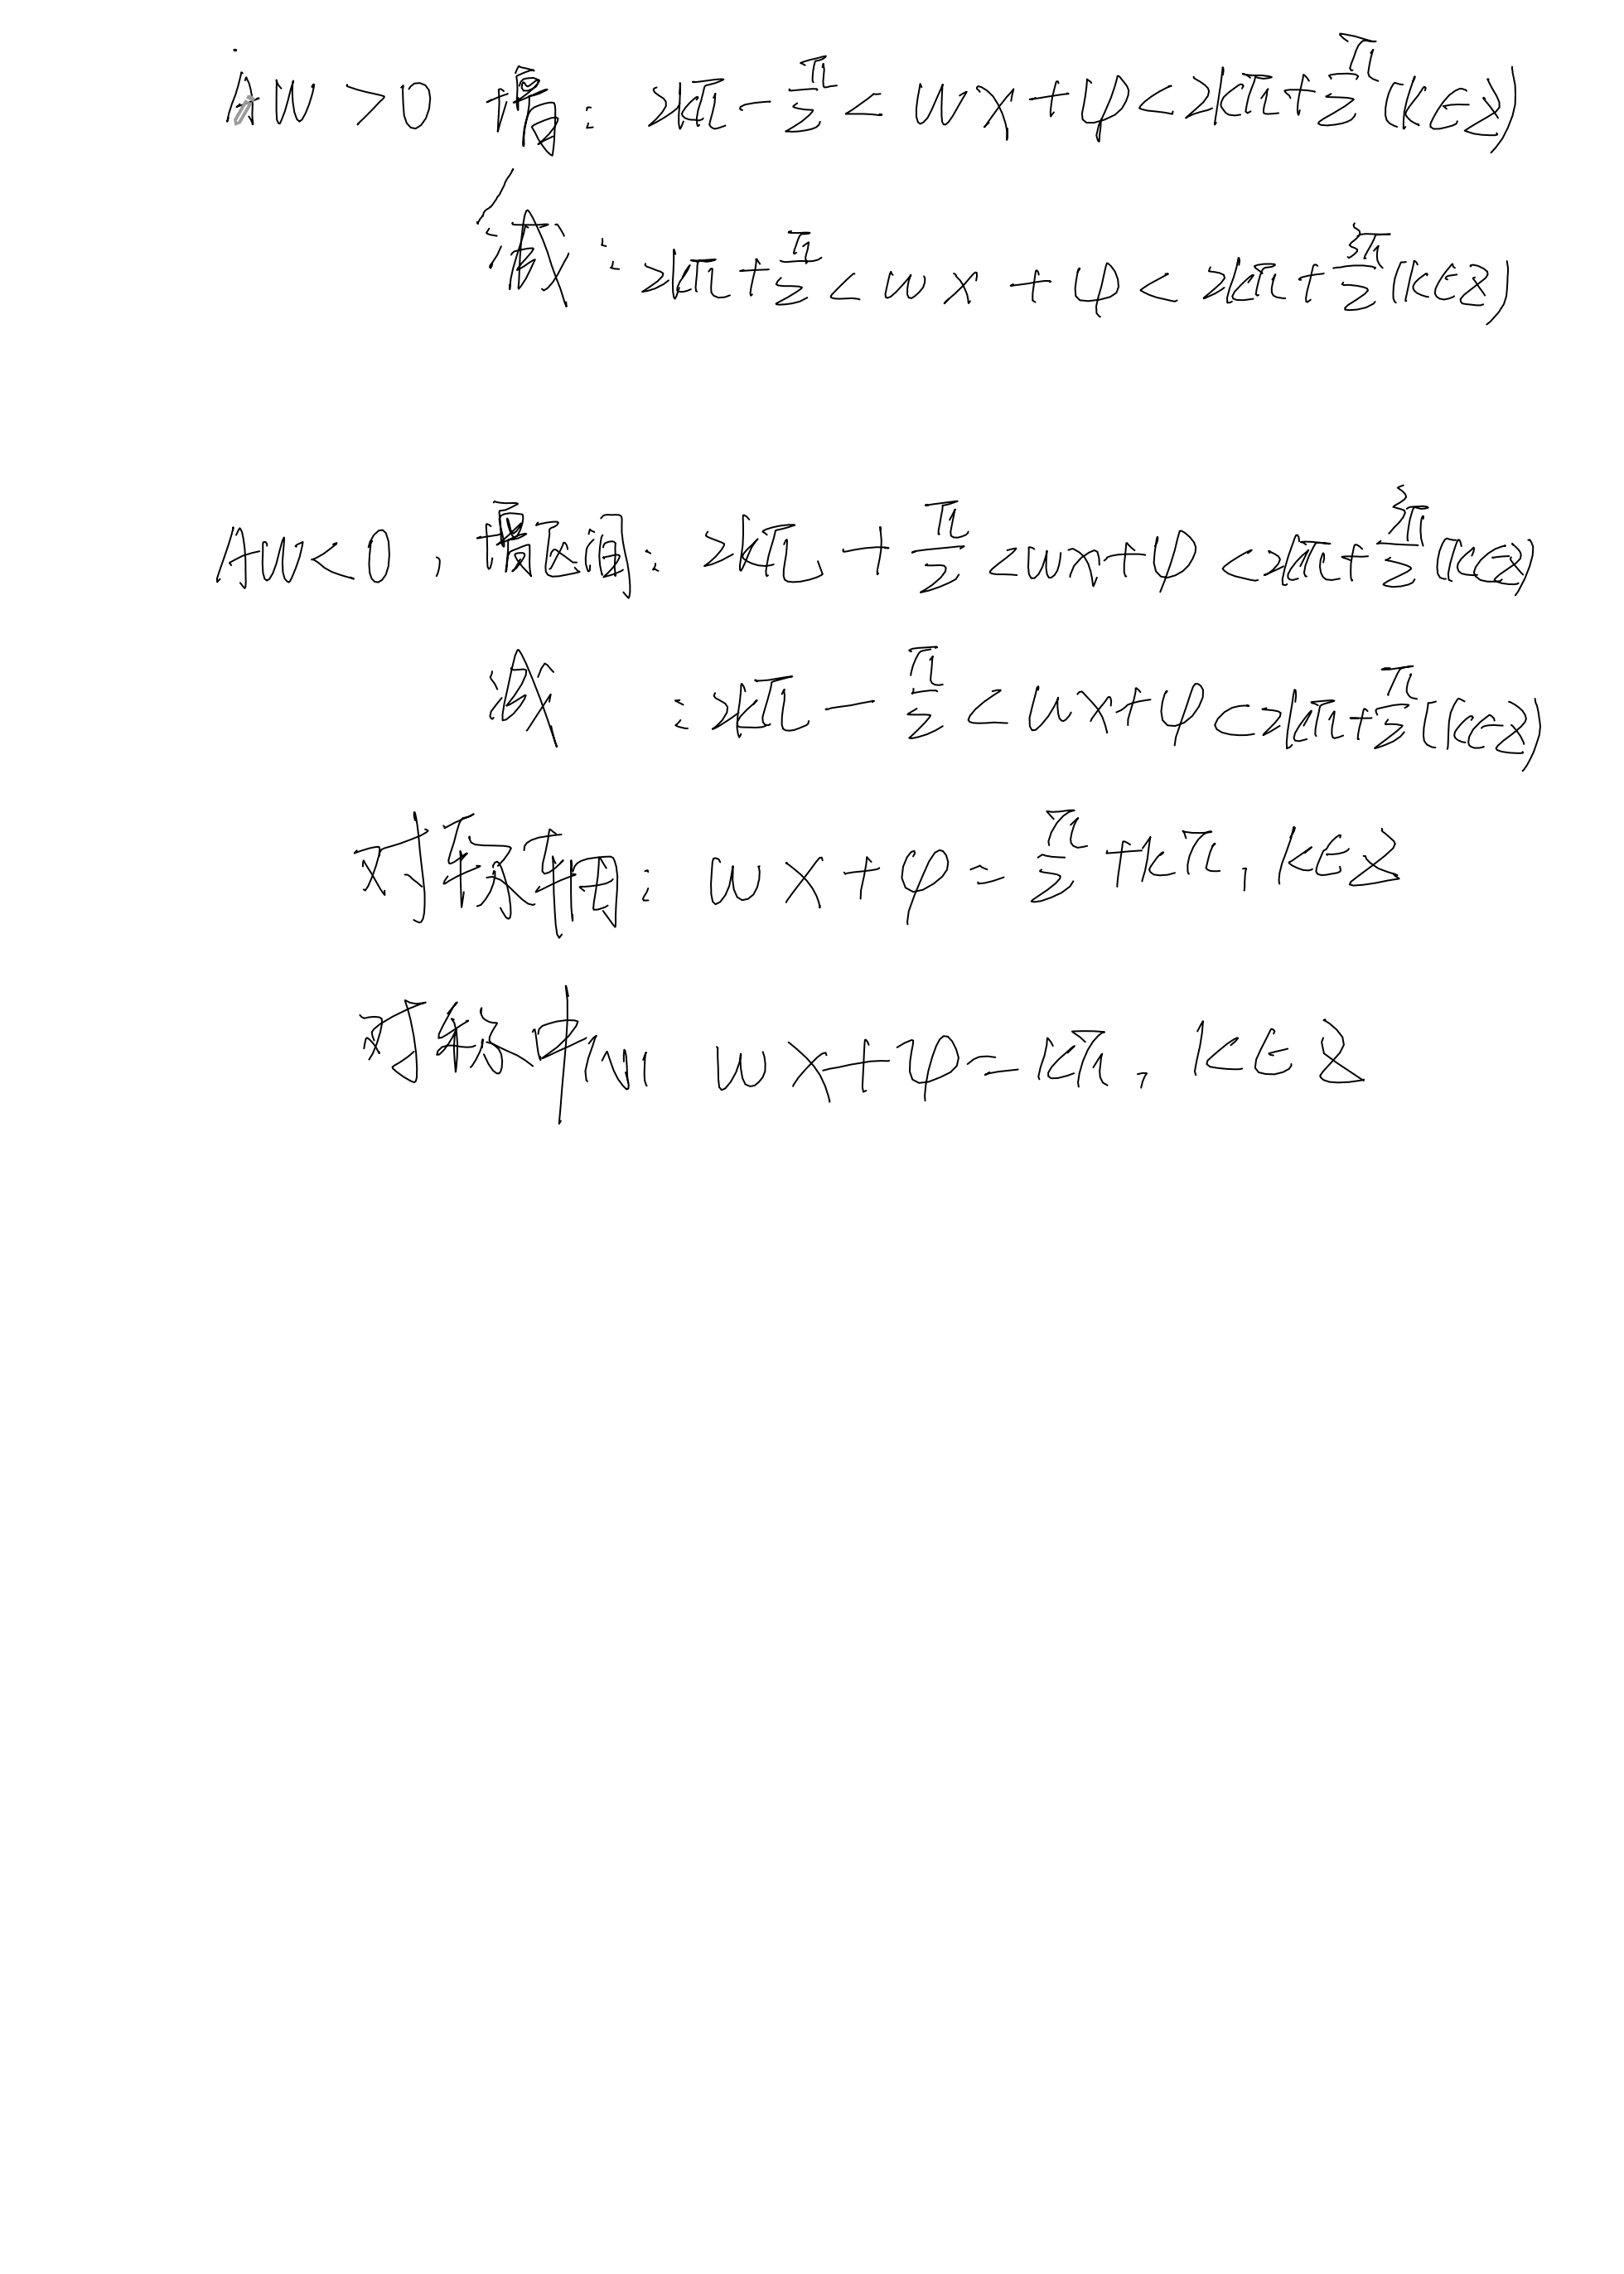 AW>0 增: 2kπ-π/2<wx+φ<2kπ+π/2(k∈z)
减:2kπ+π/2<wx+φ<2kπ+3π/2(k∈z)
AW<0, 增区间: 2kπ+π/2<wx+φ<2kπ+3π/2(k∈z)
减:2kπ-π/2<wx+φ<2kπ+π/2(k∈z)
对称轴: wx+φ=π/2+kπ, k∈z
对称中心 wx+φ=kπ, k∈z